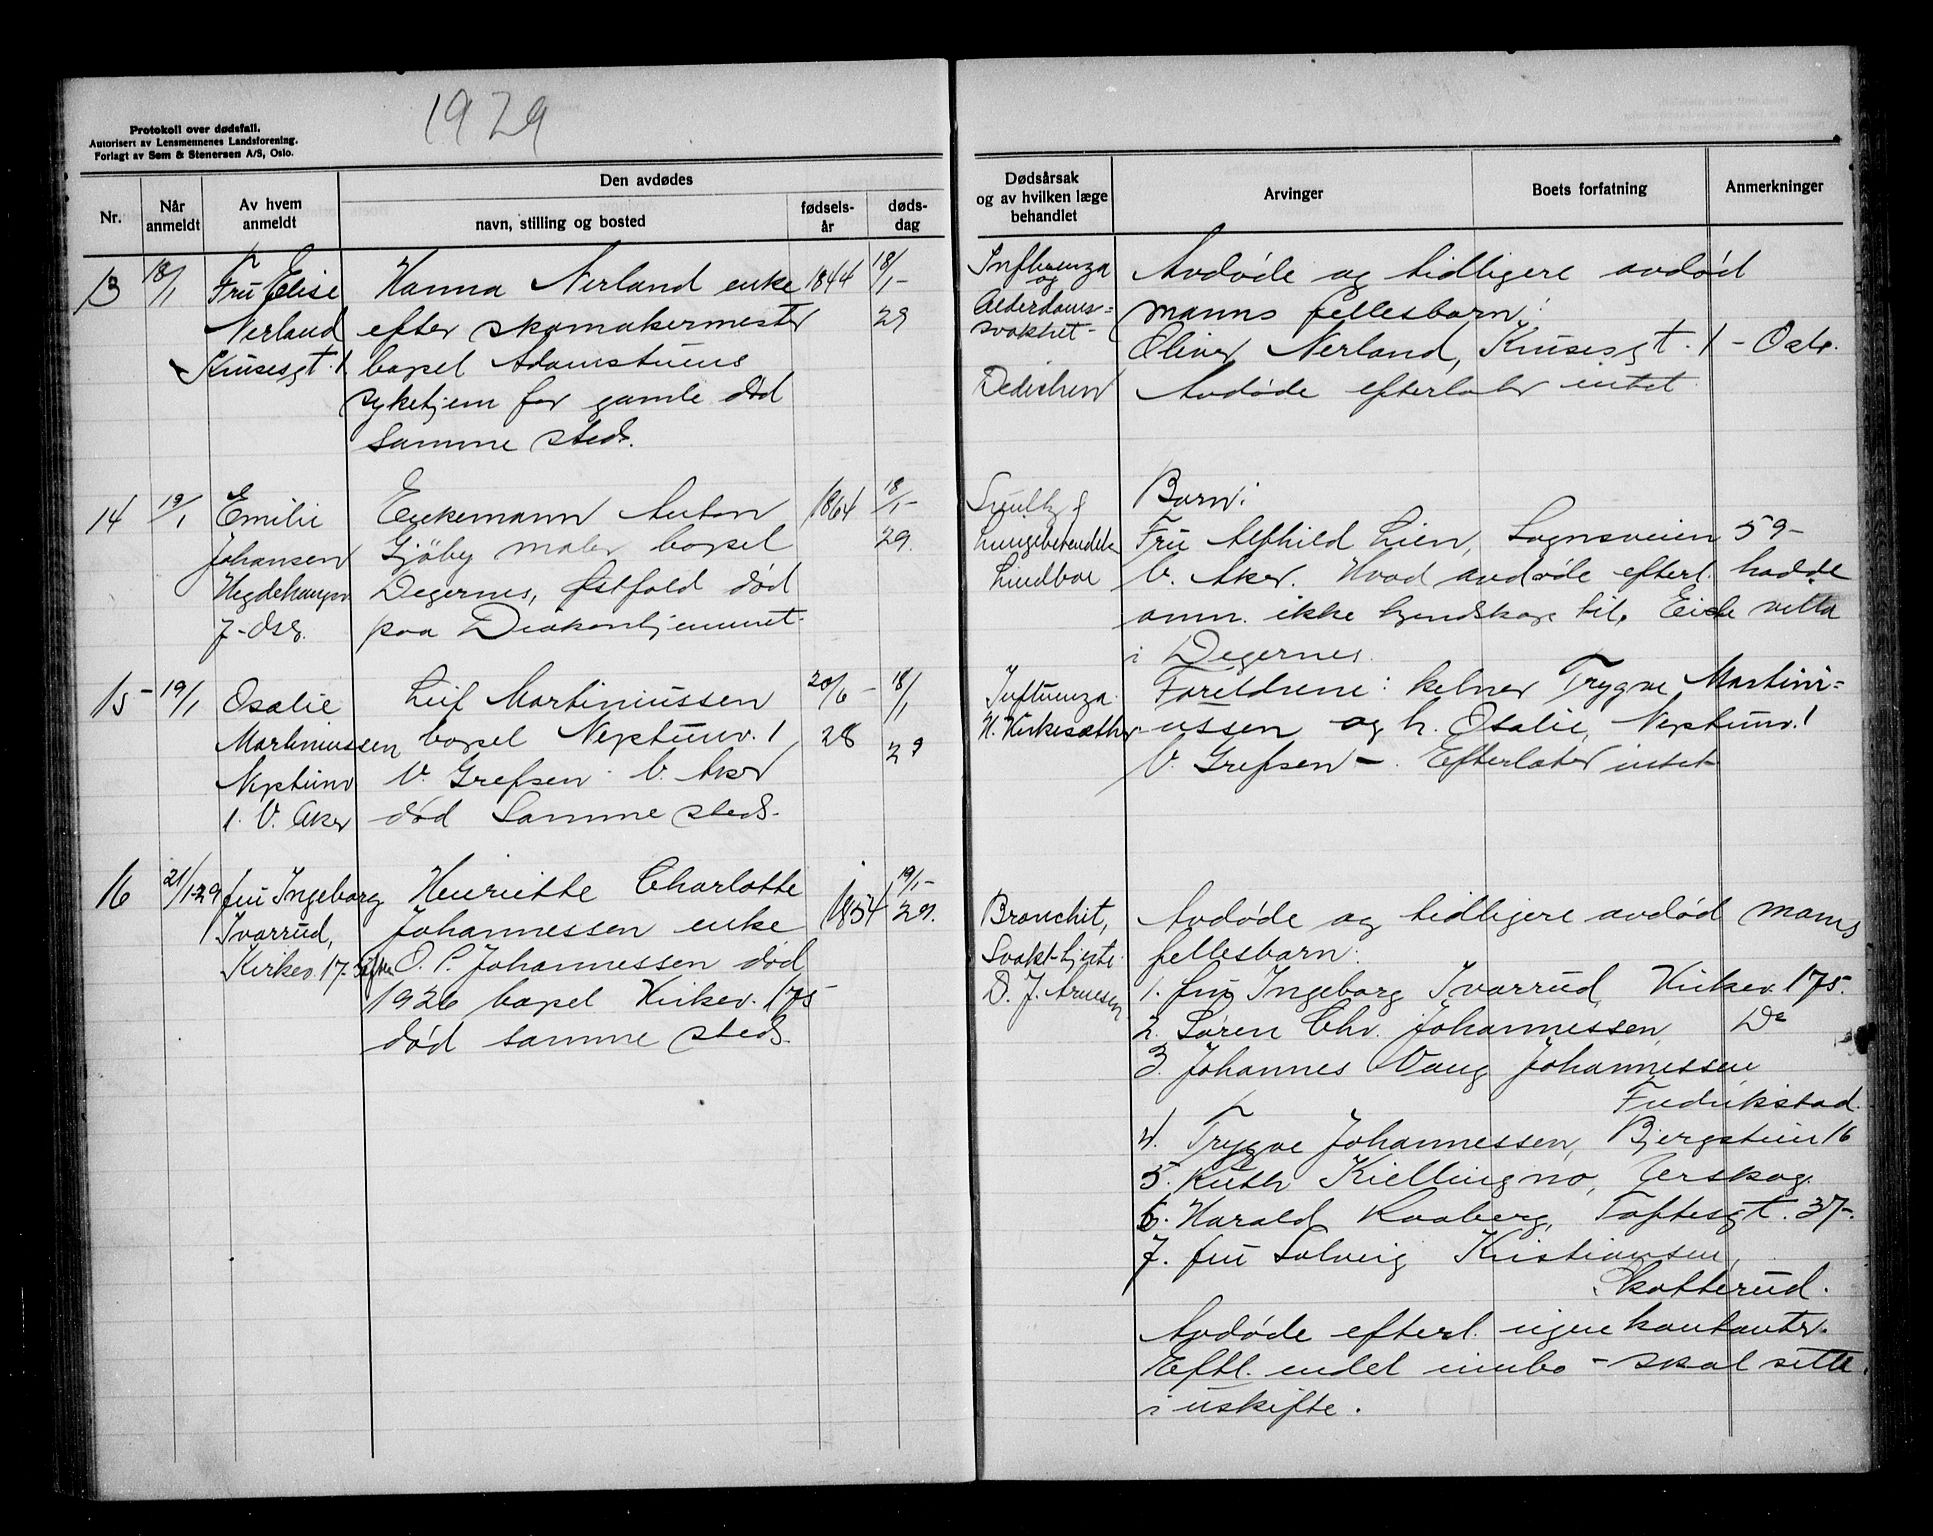 1929
Protokoll over dødsfall.
Autorisert av Lensmennenes Landsforening.
Forlagt av Sem & Stenersen A/S, Oslo.
Nr.
Når anmeldt
Av hvem anmeldt
Den avdødes
navn, stilling og bosted
fødsels-år
døds-dag
Dødsårsak og av hvilken læge behandlet
Arvinger
Boets forfatning
Anmerkninger
13
18/1
Fru Elise
Nerland
Krusesgt. 1
Hanna Nerland enke
efter skomakermester
bopel Adamstuens
sykehjem for gamle død
samme sted.
1844
18/1-
29
Influenza
og
Alderdoms-
svakhet-
Dedichen
Avdøde og tidligere avdød
manns fellesbarn:
Oliver Nerland, Krusesgt. 1 - Oslo.
Avdøde efterlater intet
14
19/1
Emilie
Johansen
Hegdehaugsv
7- Oslo.
Enkemann Anton
Gjöby maler bopel
Degernes, Østfold død
paa Diakonhjemmet.
1864
18/1-
29.
Lungebetendelse
Lindboe
Barn:
Fru Alfhild Lien, Sognsveien 59-
V. Aker. Hvad avdøde efterl. hadde
anm. ikke kjendskap til.
i Degernes.
15-
19/1
Osalie
Martiniussen
Neptunv
1. V. Aker
Leif Martiniussen
bopel Neptunv. 1
V. Grefsen V. Aker
død Samme steds.
20/6-
28
18/1
29
Influenza
H. Kirkesæther
Foreldrene: kelner Trygve Martini-
ussen og h. Osalie, Neptunv. 1
V. Grefsen -. Efterlater intet
16
21/1-29
fru Ingeborg
Ivarrud,
Kirkev. 175
Henriette Charlotte
Johannessen enke
efter O. P. Johannessen død
1926 bopel Kirkev. 175
død samme steds.
1854
19/1-
29.
Bronchit,
Svakt hjerte.
D. J. Arnesen
Avdøde og tidligere avdød manns
fellesbarn:
1. fru Ingeborg Ivarrud, Kirkev. 175.
2. Søren Chr. Johannessen, Do
3. Johannes Vang Johannessen,
Fredrikstad.
4. Trygve Johannessen, Bjergstien 16
5. Ruth Kiellingmo, Urskog.
6. Harald Raaberg, Toftesgt. 37-.
7. fru Solveig Kristiansen,
Skotterud.
Avdøde efterl. ingen kontanter.
Eftl. endel innbo - skal sitte
i uskifte.